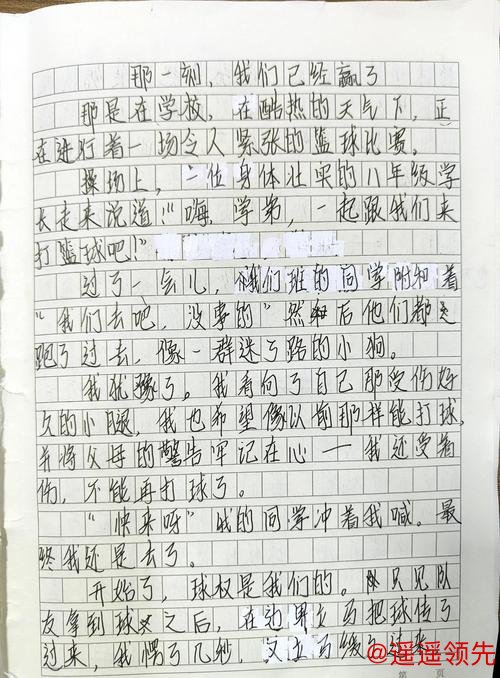 那一刻，我们已经赢了
那是在学校，在酷热的天气下，正
在进行着一场令人紧张的篮球比赛。
操场上，一位身体壮实的八年级学
长走来说道："嗨，学弟，一起跟我们来
打篮球吧！"
过了一会儿，我们班的同学附和着
"我们去吧，没事的"然后他们都
跑了过去，像一群迷了路的小狗。
我犹豫了。我看向了自己那受伤好
久的小腿，我也希望像以前那样能打球，
并将父母的警告牢记在心——我还受着
伤，不能再打球了。
"快来呀"我的同学冲着我喊。最
终我还是去了。
开始了，球权是我们的。只见队
友拿到球之后，在边界立马把球传了
过来，我愣了几秒，又立马
第 页
@遥遥领先